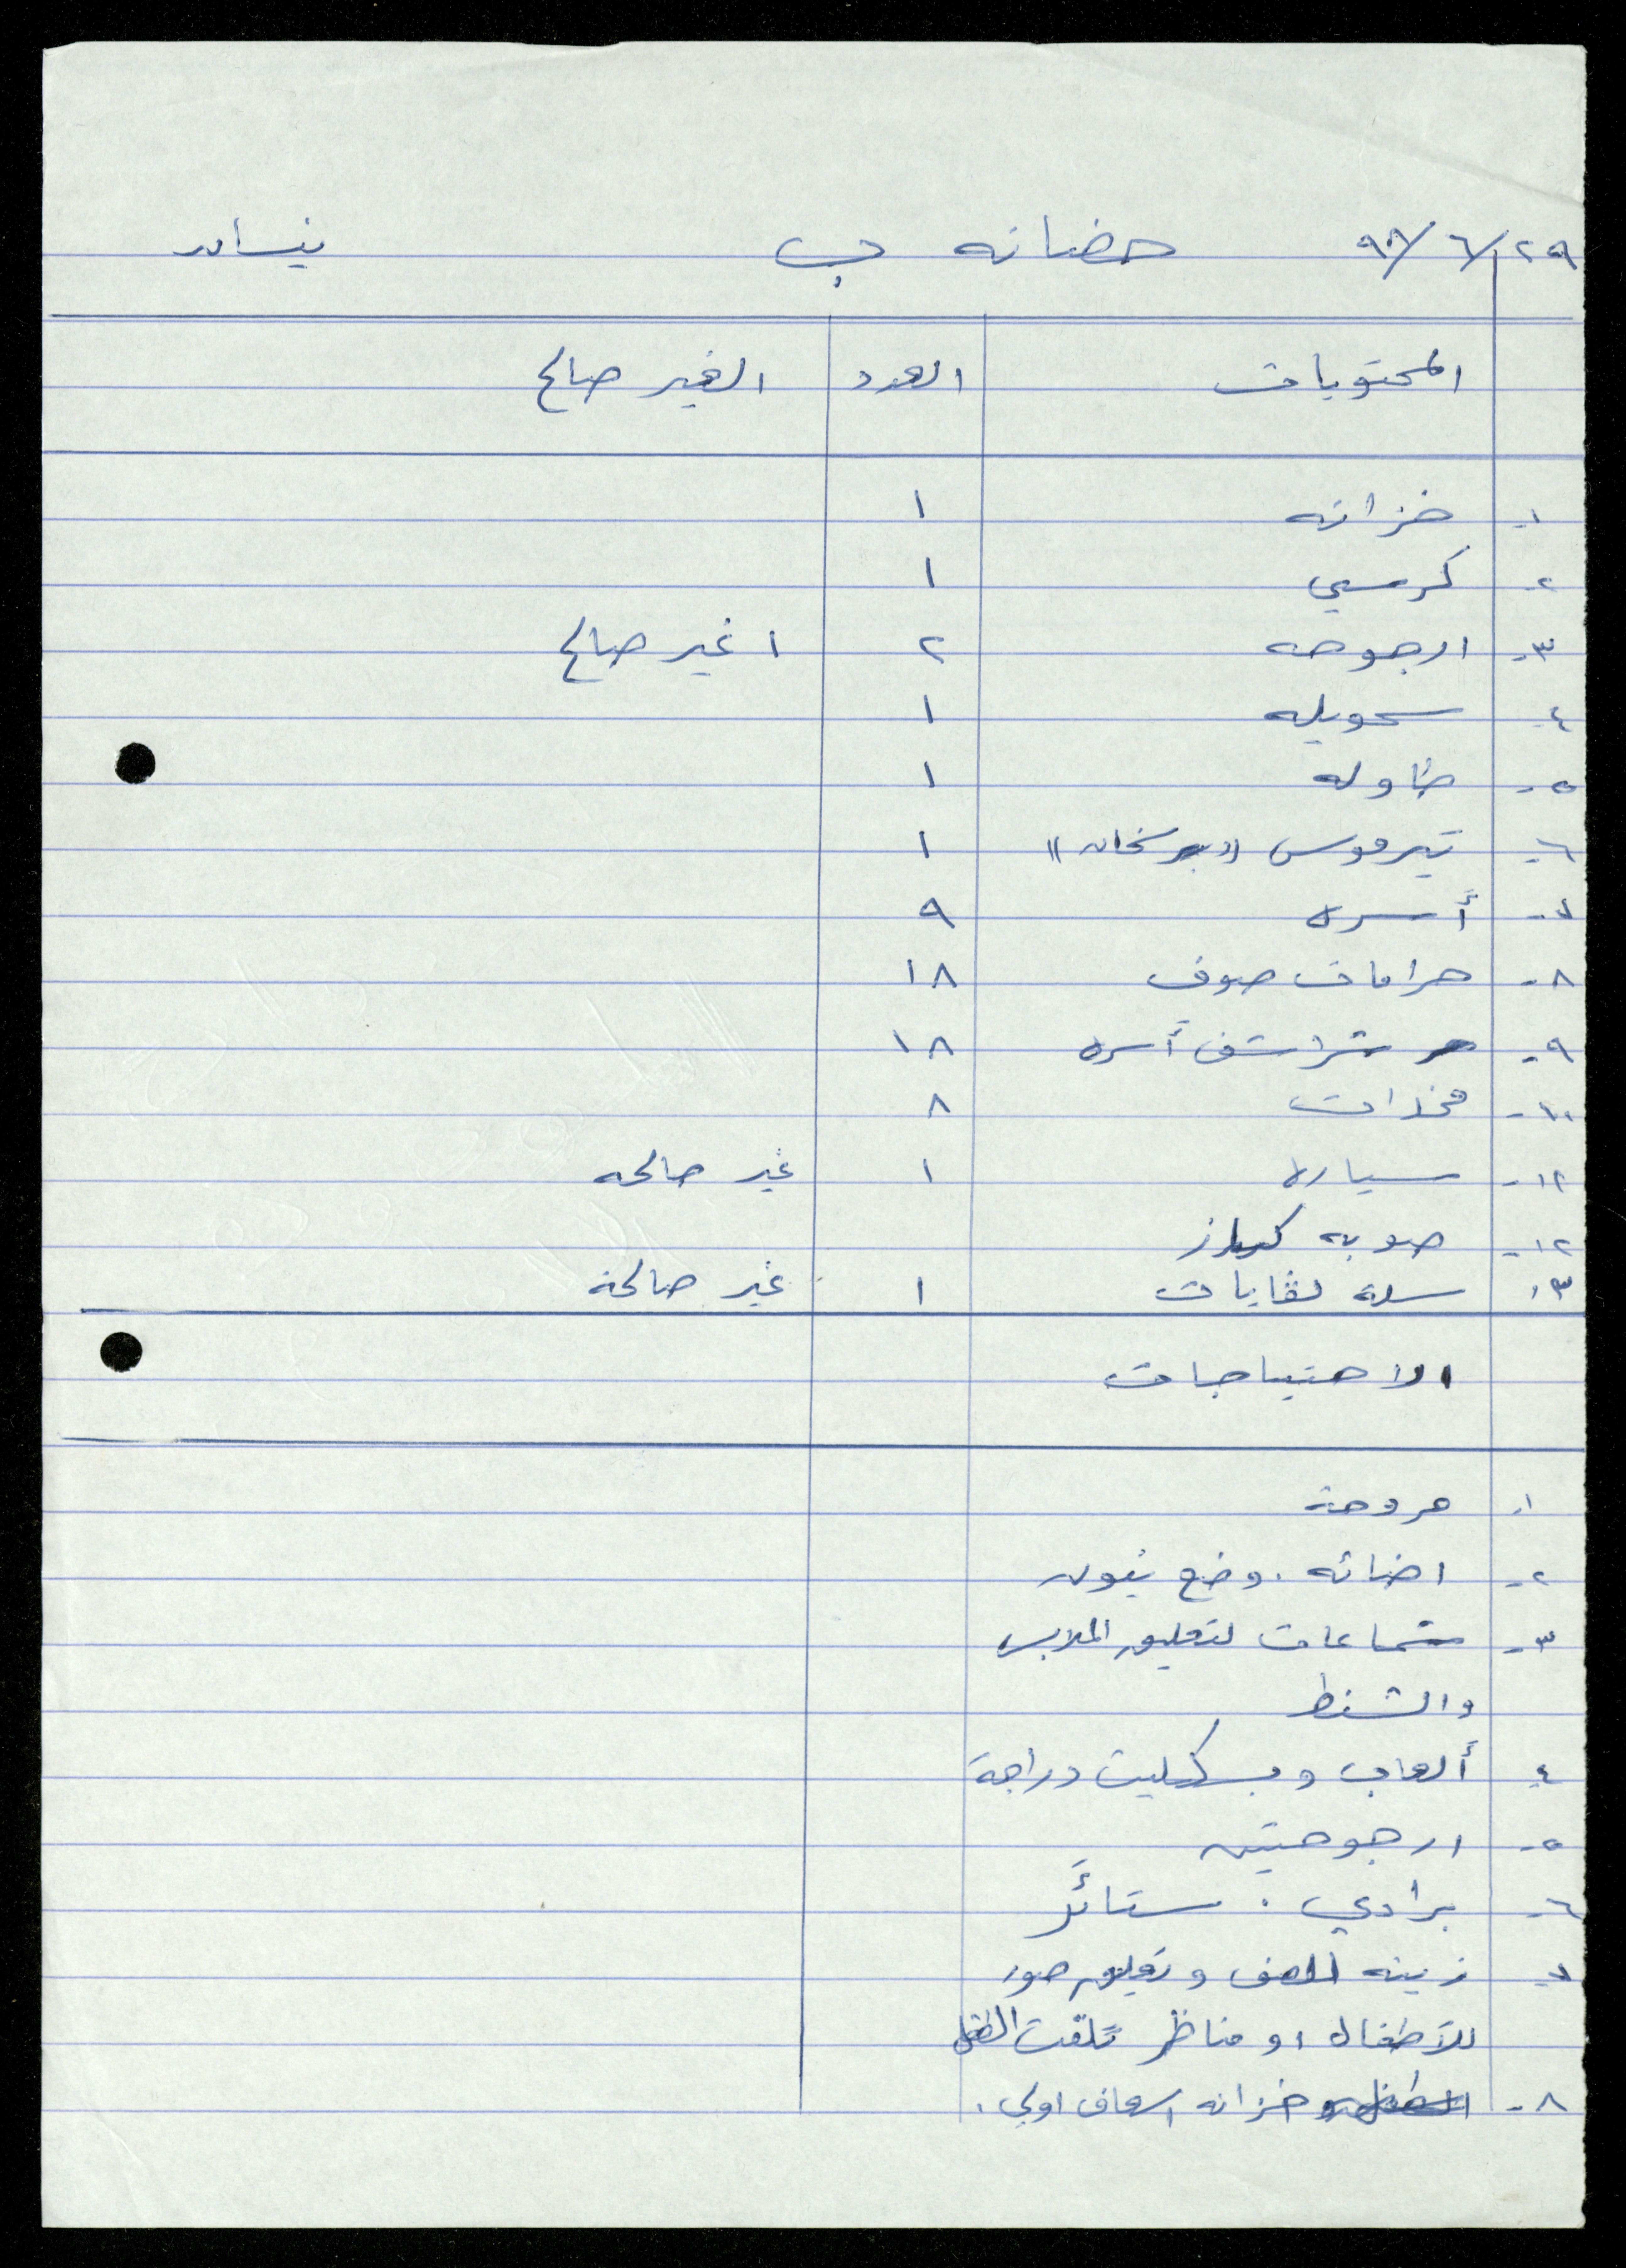 ٢٩/٦/٩٨ حضانه ب نيسان
المحتويات العدد الغير صالح
١- خزانه ١
٢- كرسي ١
٣- ارجوحه ٢ ١ غير صالح
٤- سحويله ١
٥- طاوله ١
٦- تيرموس ١
٧- أسره ٩
٨- حرامات صوف ١٨
٩- شراشف أسره ١٨
١٠- مخدات ٨
١٢- سياره ١ غير صالحه
١٢- صوبه كاز
١٣ سلة نفايات ١ غير صالحة
الاحتياجات
١- مروحة
٢- اضائه . وضع نيون
٣- شماعات لتعليق الملابس
والشنط
٤- ألعاب وبسكليت دراجة
٥- ارجوحتين
٦- برادي . ستائر
٧- زينه الصف وتعليق صور
للأطفال او مناظر تلفت الطفل
٨- خزانه اسعاف اولي .